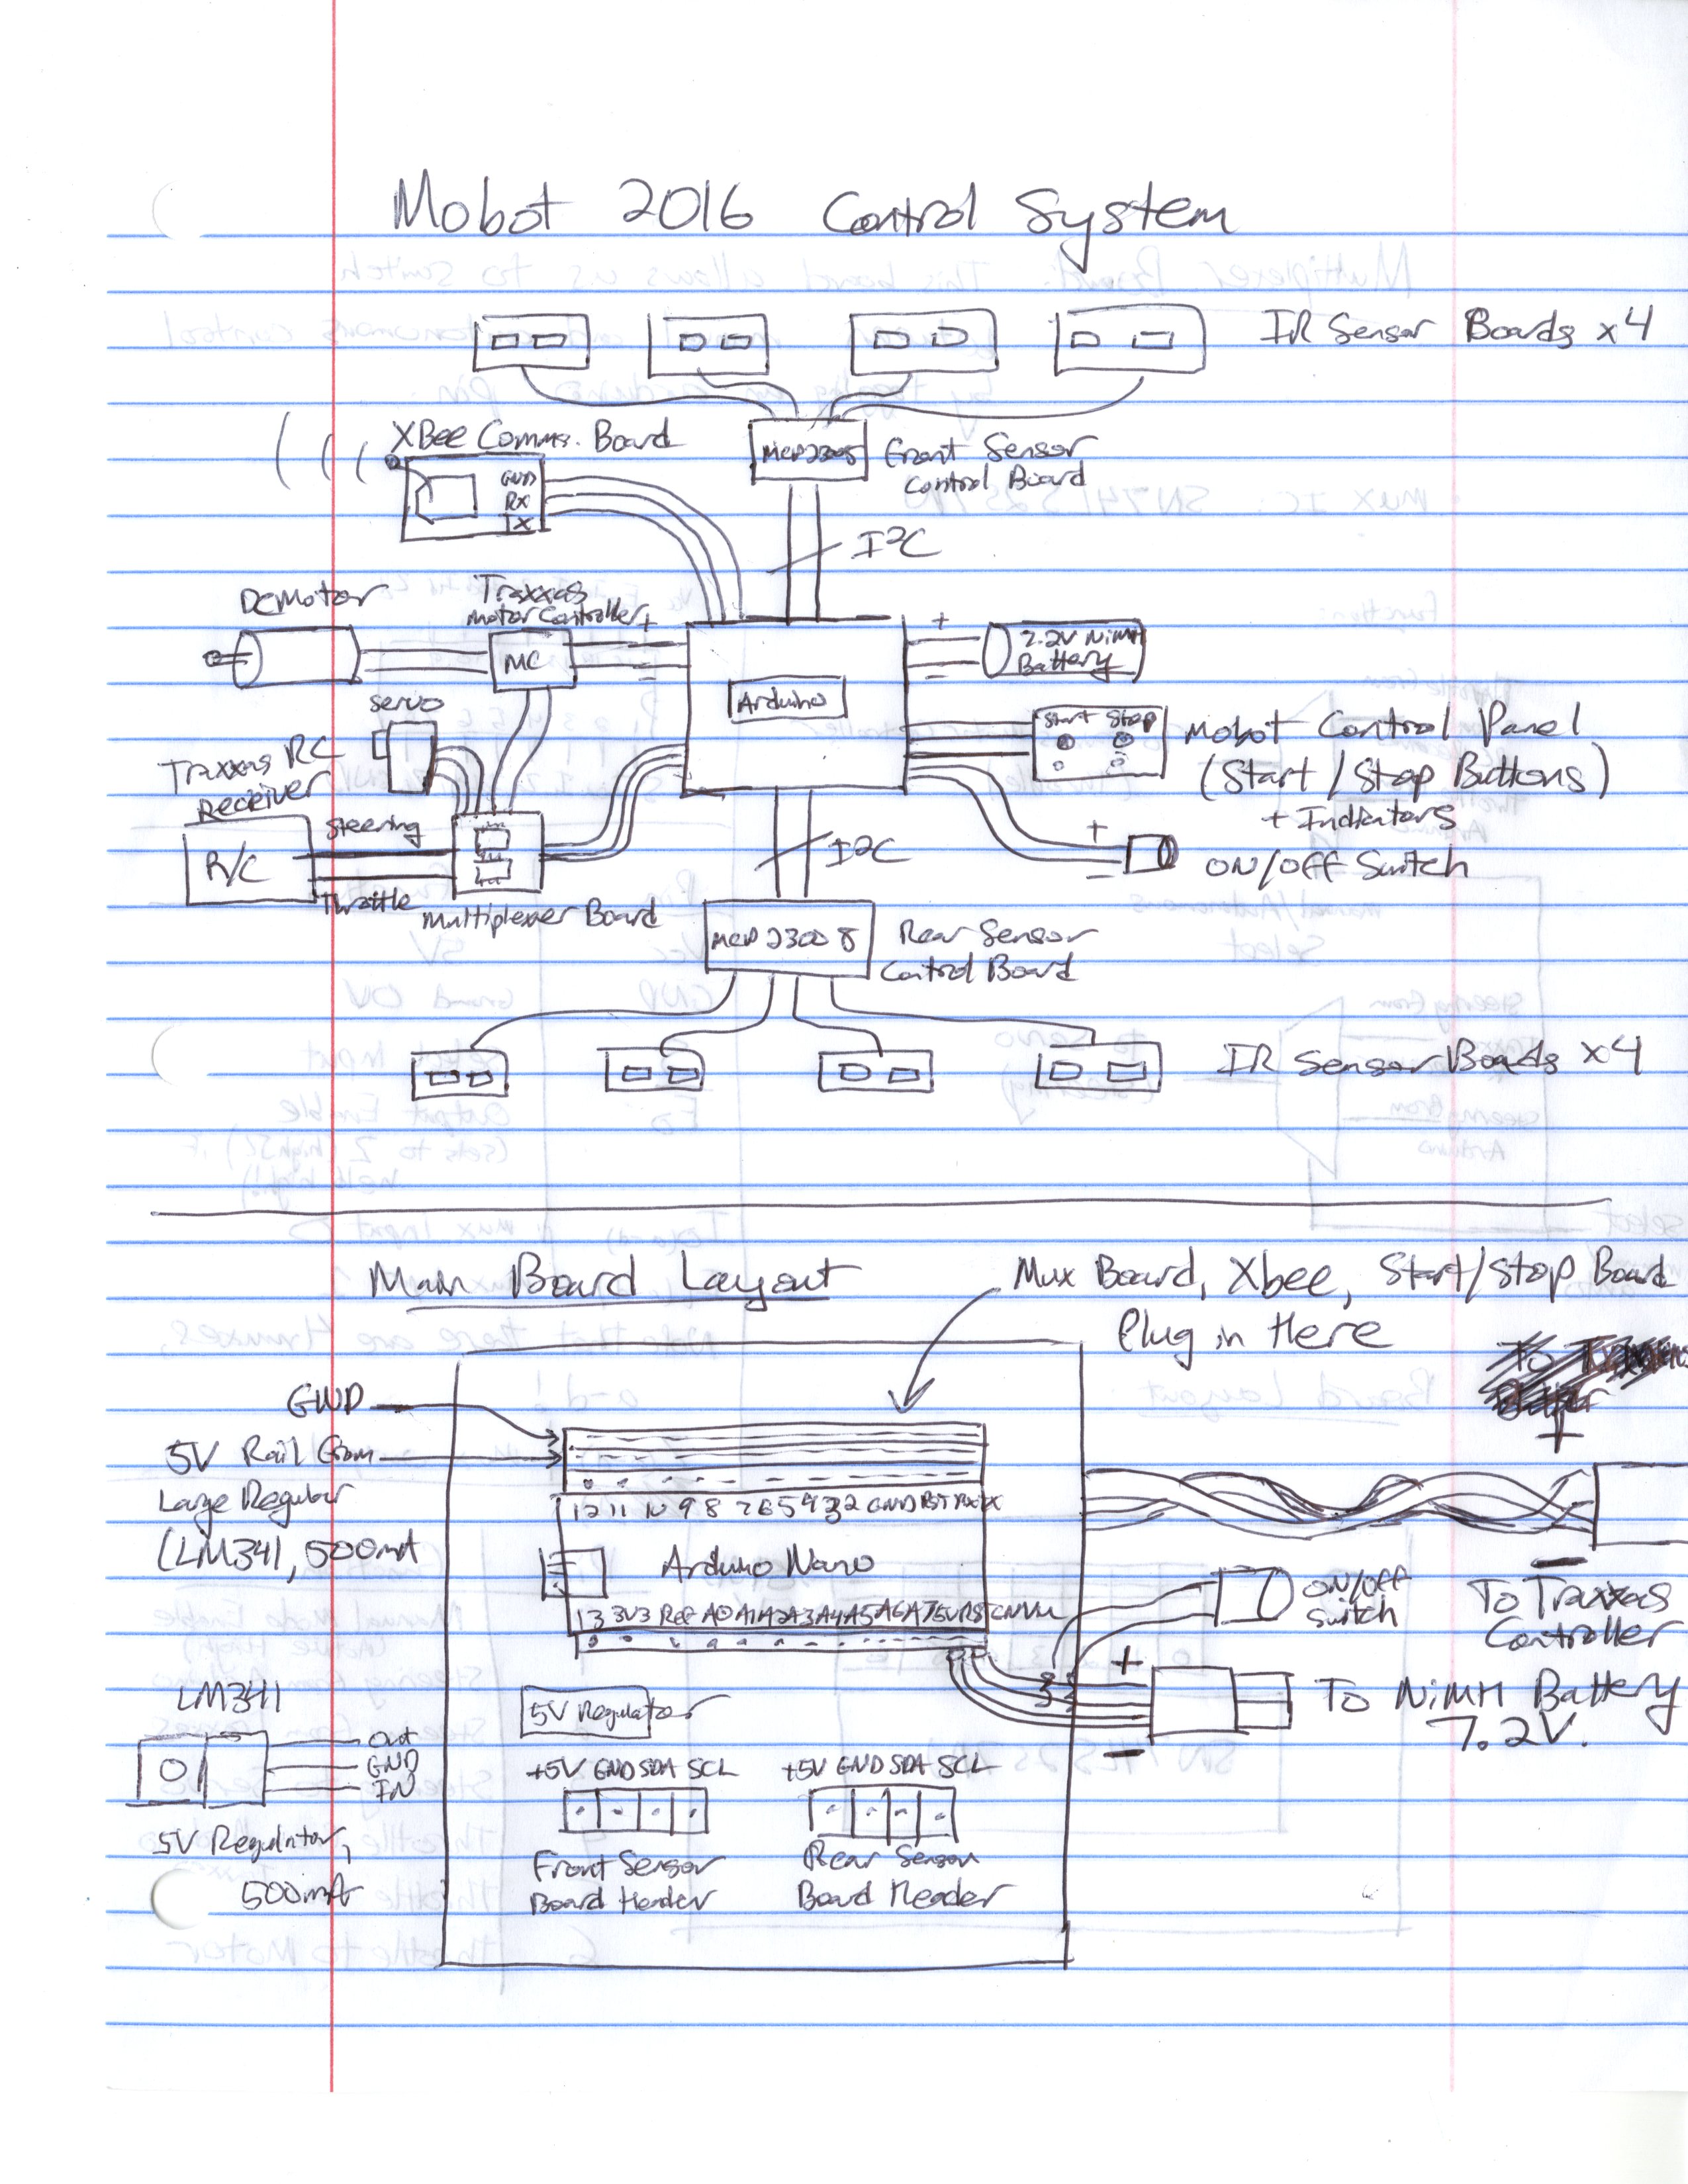 Mobot 2016 Control System
IR Sensor Boards x4
XBee Comms. Board
GND
RX
TX
MCP23008
Front Sensor
Control Board
I²C
DC Motor
Traxxas
Motor Controller
+
-
MC
Arduino
+
-
7.2V NiMH
Battery
Servo
Start Stop
Mobot Control Panel
(Start/Stop Buttons)
+ Indicators
Traxxas RC
Receiver
R/C
Steering
Throttle
Multiplexer Board
+
-
ON/OFF Switch
I²C
MCP23008
Rear Sensor
Control Board
IR Sensor Boards x4
Main Board Layout
Mux Board, Xbee, Start/Stop Board
Plug in Here
GND
5V Rail From
Large Regular
(LM341, 500mA
12 11 10 9 8 7 6 5 4 3 2 GND RST RX TX
Arduino Nano
13 3V3 Ref A0 A1 A2 A3 A4 A5 A6 A7 5V RST GND Vin
+
-
To Traxxas
Controller
ON/OFF
Switch
+
-
To NiMH Battery
7.2V.
LM341
Out
GND
IN
5V Regulator,
500mA
5V Regulator
+5V GND SDA SCL
Front Sensor
Board Header
+5V GND SDA SCL
Rear Sensor
Board Header